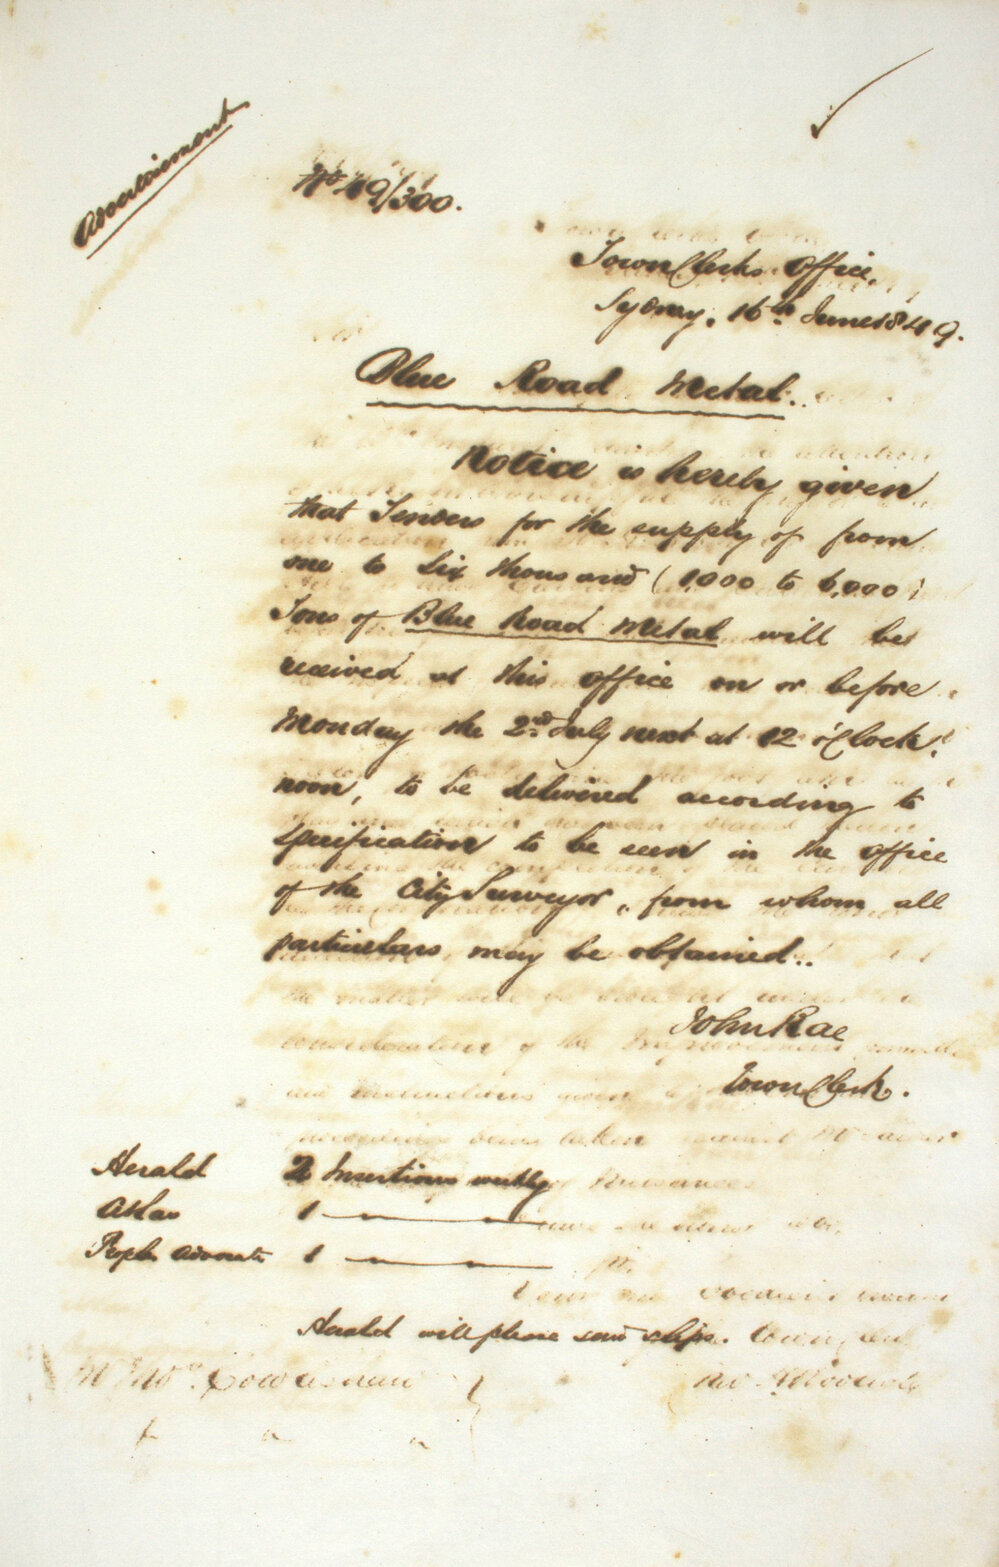 Advertisement
No 49/300.
Town Clerks Office,
Sydney, 16th June 1849.
Blue Road Metal.
Notice is hereby given
that Tenders for the supply of from
one to Six thousand (1,000 to 6,000)
Tons of Blue Road Metal will be
received at this office on or before
Monday the 2nd July next at 12 o'Clock,
noon, to be delivered according to
Specification to be seen in the office
of the City Surveyor, from whom all
particulars may be obtained..
John Rae
Town Clerk.
Herald 2 Insertions weekly
Atlas 1 —
Peoples Advocate 1 —
Herald will please send slips.